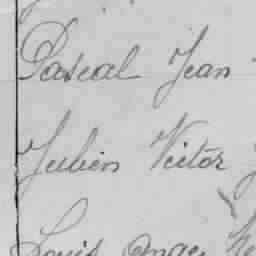 Pascal Jean
Julien Victor
Louis Ange